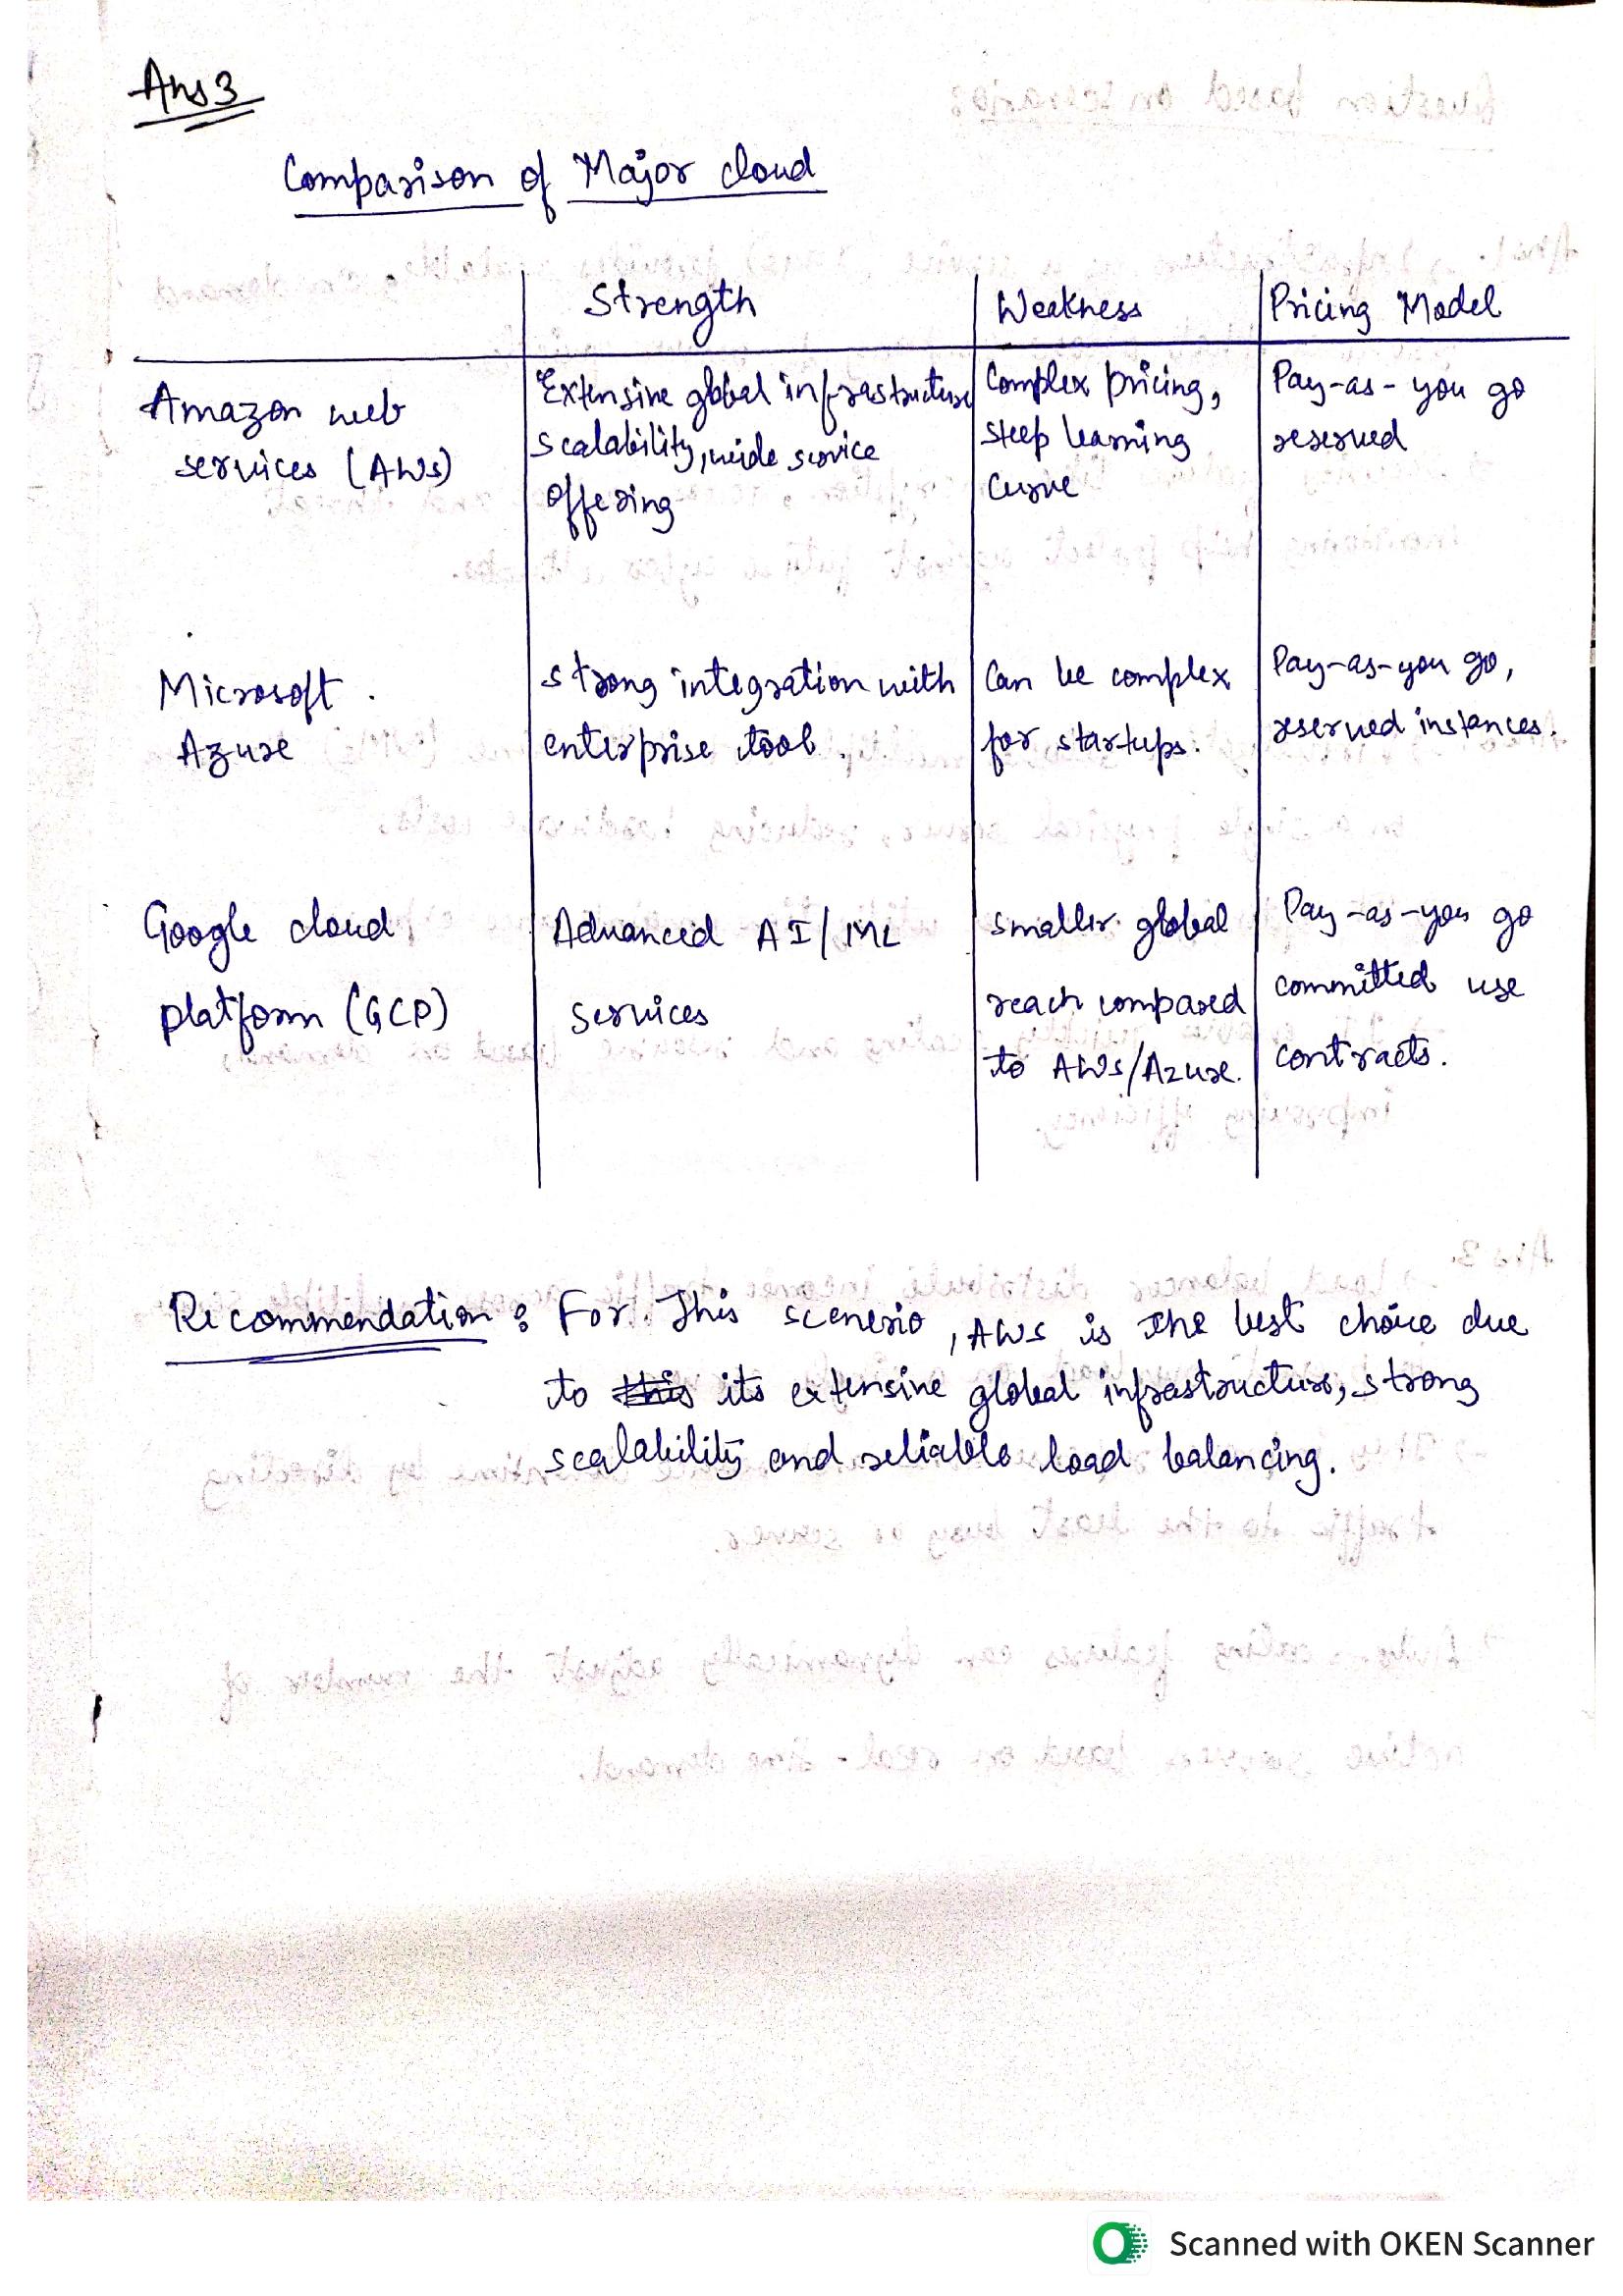 Ans 3
Comparison of Major cloud
Strength | Weakness | Pricing Model
Amazon web services (AWS) | Extensive global infrastructure scalability, wide service offering | Complex pricing, steep learning curve | Pay-as-you go reserved
Microsoft Azure | Strong integration with enterprise tool | Can be complex for startups. | Pay-as-you go, reserved instances.
Google cloud platform (GCP) | Advanced AI/ML services | Smaller global reach compared to AWS/Azure. | Pay-as-you go committed use contracts.
Recommendation : For This scenerio, AWS is The best choice due
to its extensive global infrastructure, strong
scalability and reliable load balancing.
Scanned with OKEN Scanner